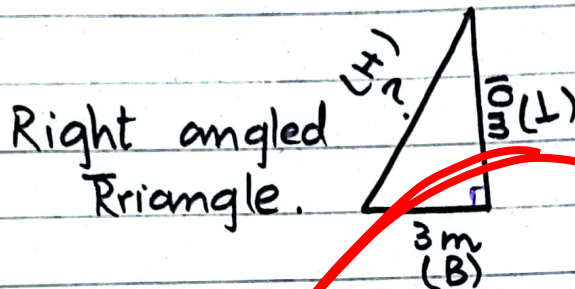 Right angled
Rriangle.
(H)
?
10 m
(⊥)
3 m
(B)